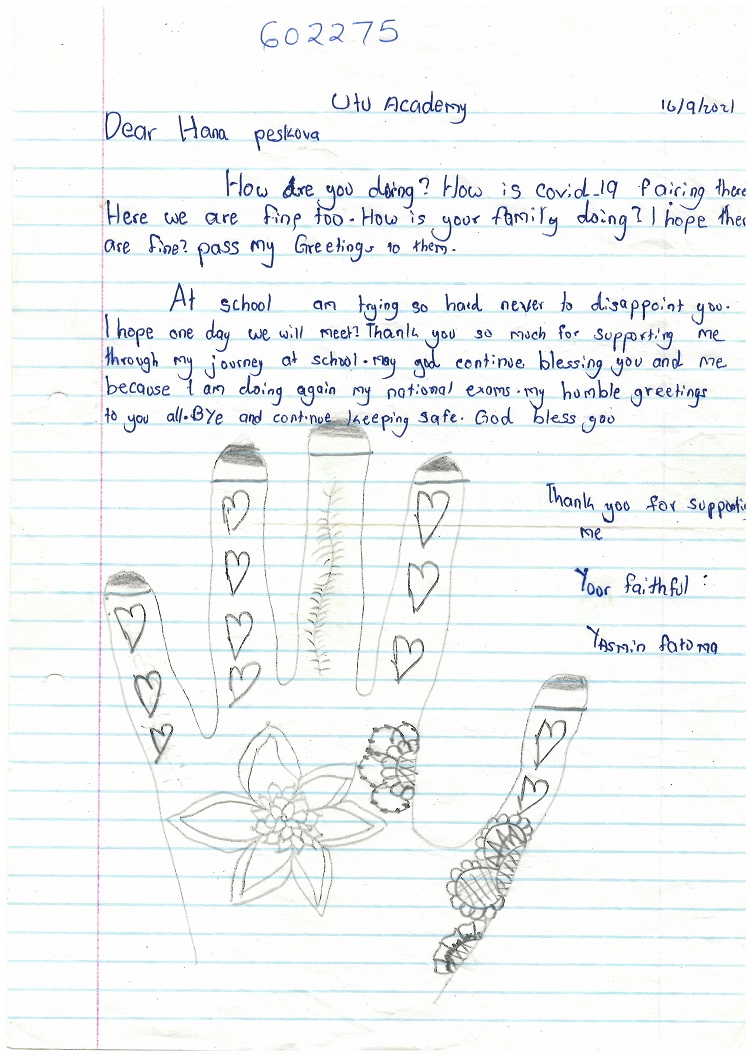 602275
Utu Academy
16/9/2021
Dear Hana peskova
How are you doing? How is covid-19 fairing there
Here we are fine too. How is your family doing? I hope ther
are fine? pass my Greetings to them.
At school am trying so hard never to disappoint you.
I hope one day we will meet? Thank you so much for supporting me
through my journey at school. may god continue blessing you and me
because I am doing again my national exams. my humble greetings
to you all. BYe and continue keeping safe. God bless you
Thank you for supporti
me
Your faithful :
YAsmin fatuma